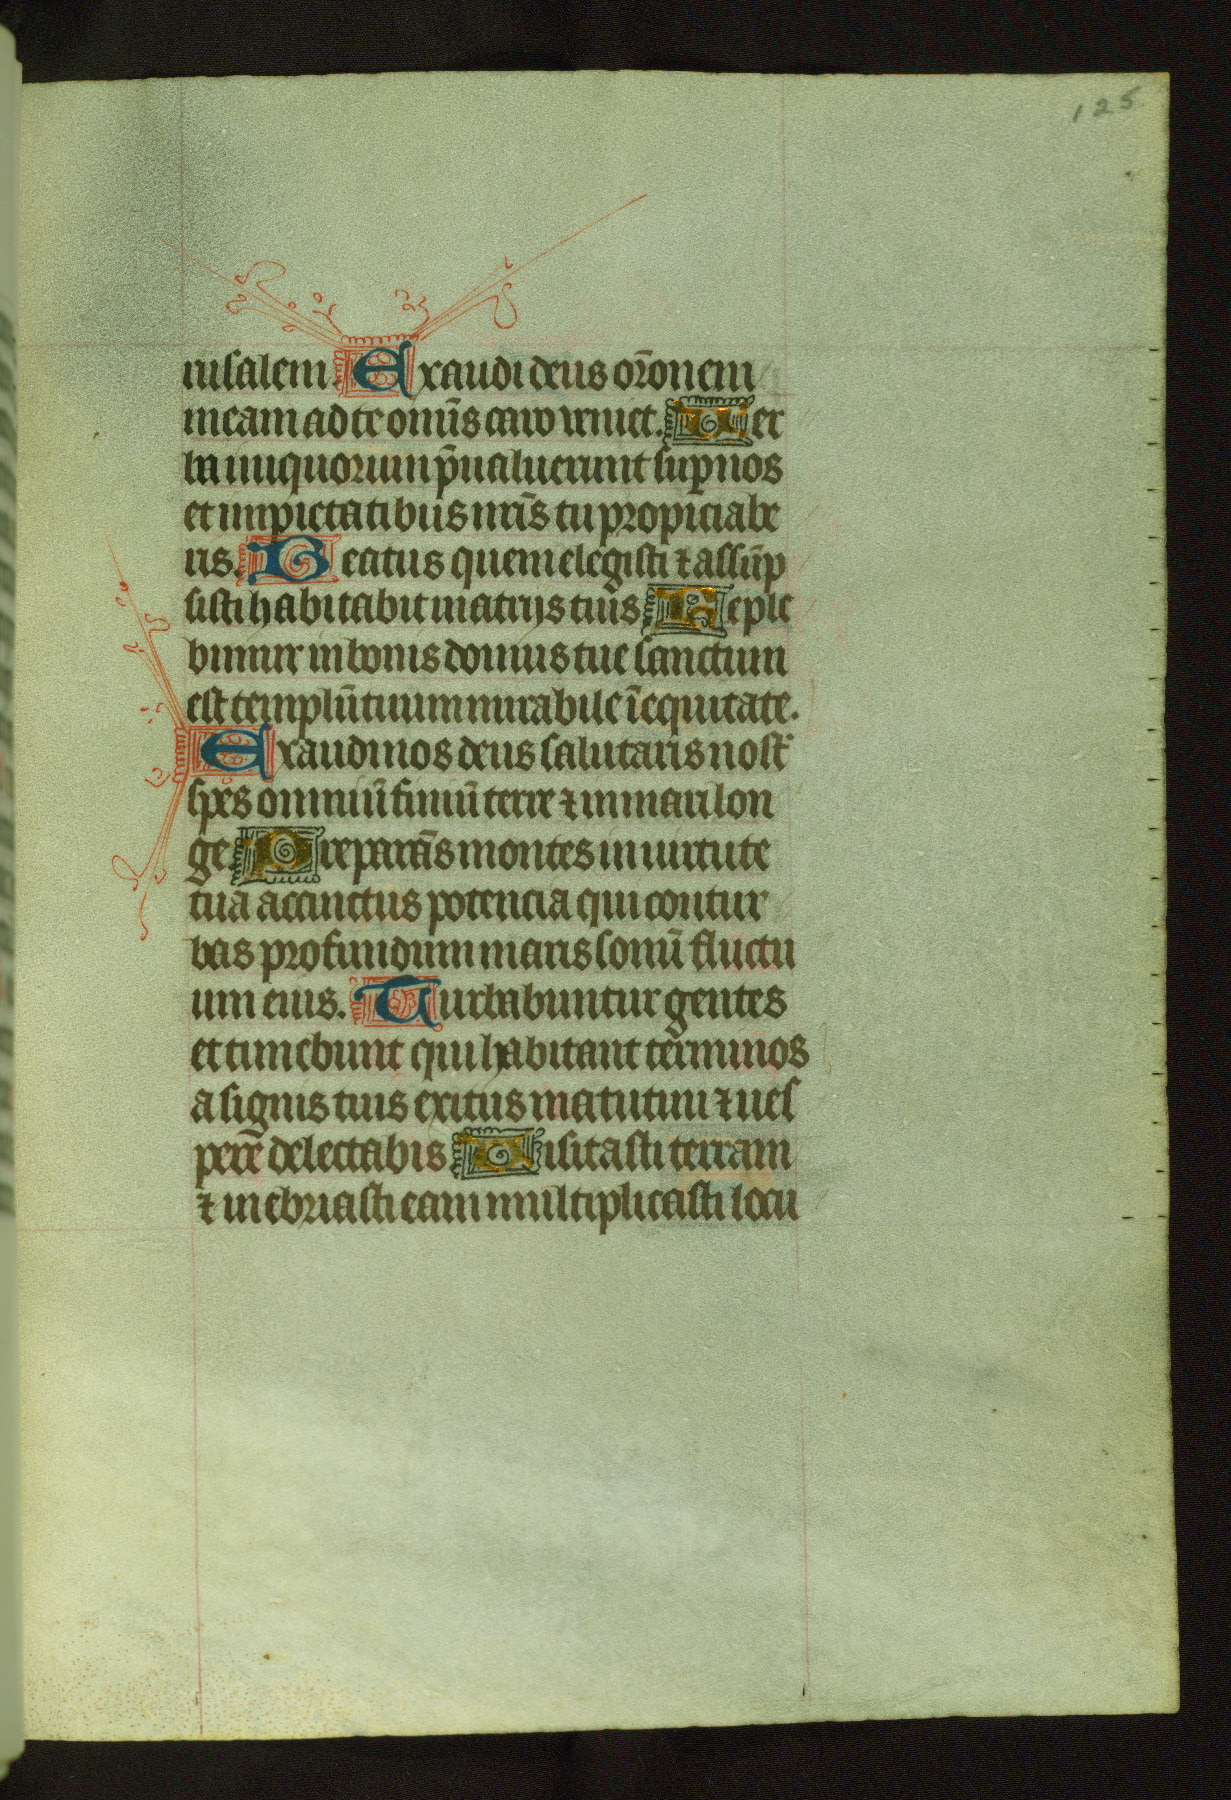 125
rusalem. Exaudi deus or̄onem
meam ad te omīs caro veniet. Ver
ba iniquorum p̄ualuerunt sup nos
et impietatibus nr̄is tu propiciabe
ris. Beatus quem elegisti ⁊ assūp
sisti habitabit in atrijs tuis Reple
bimur in bonis domus tue sanctum
est templū tuum mirabile ī equitate.
Exaudi nos deus salutaris nost̄
spes omniū finiū terre ⁊ in mari lon
ge Preparās montes in uirtute
tua accinctus potencia qui contur
bas profundum maris sonū fluctu
um eius. Turbabuntur gentes
et timebunt qui habitant terminos
a signis tuis exitus matutini ⁊ ues
perē delectabis Uisitasti terram
⁊ inebriasti eam multiplicasti locu